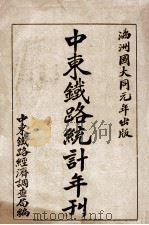 滿洲國大同元年出版
中東鐵路統計年刊
中東鐵路經濟調查局編